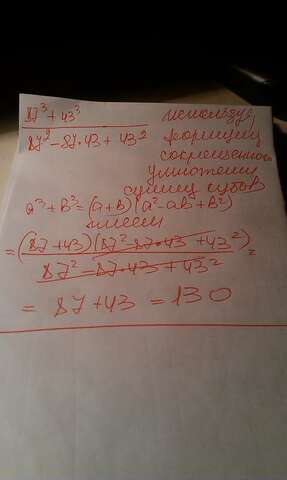 87³ + 43³
87² - 87·43 + 43²
используя
формулу
сокращенного
умножения
сумму кубов
a³ + B³ = (a+B)(a² - aB + B²)
имеем
= (87+43)(87² - 87·43 + 43²) =
87² - 87·43 + 43²
= 87 + 43 = 130